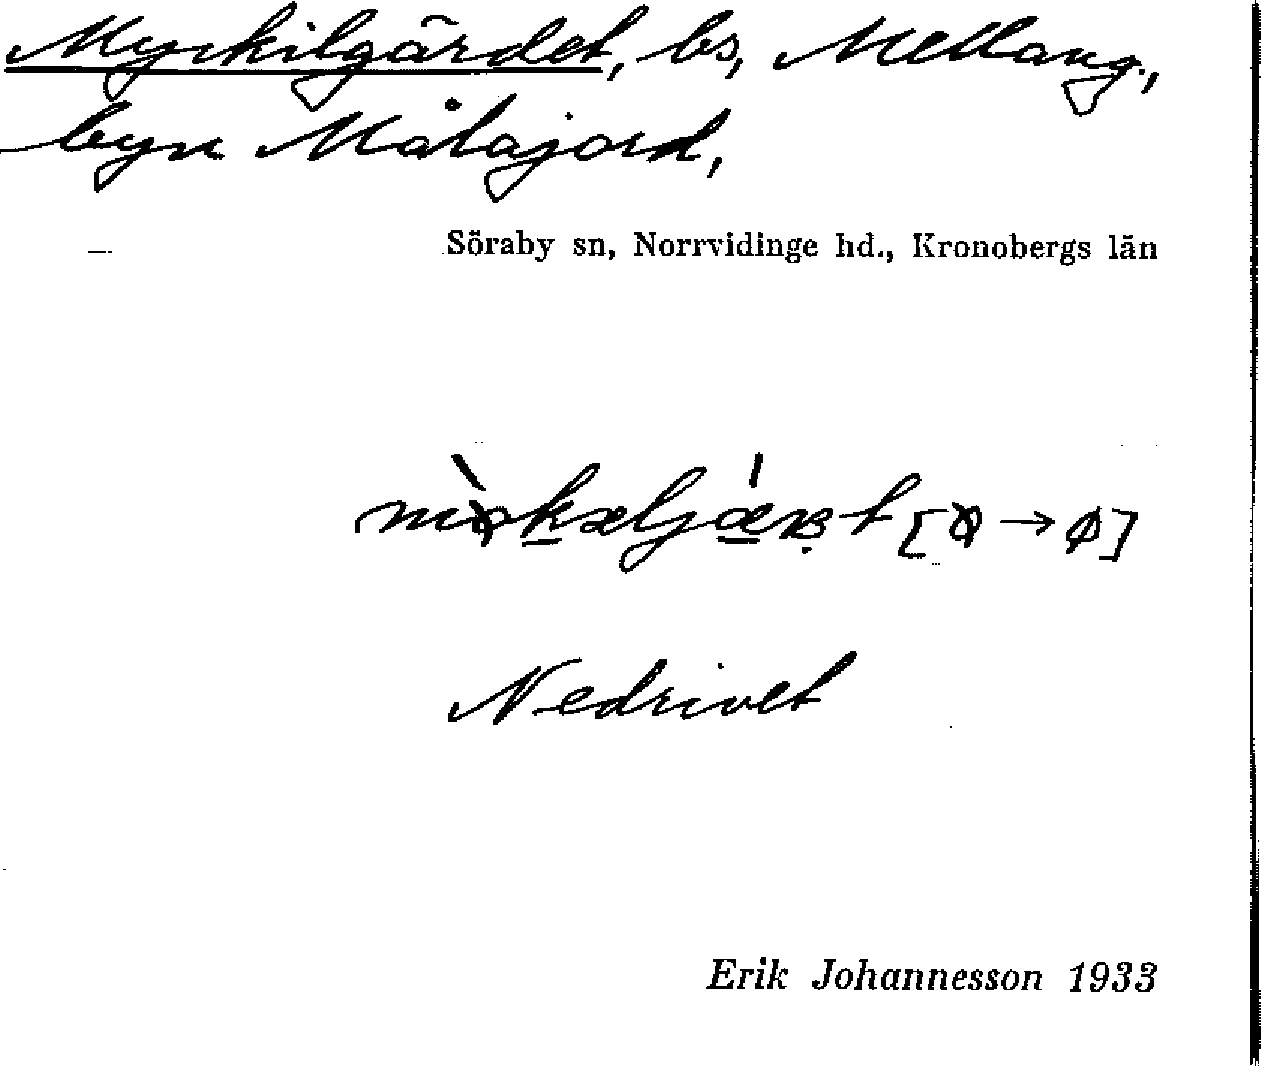 Myckilgärdet, bs, Mellang.,
byn Målajord,
Söraby sn, Norrvidinge hd., Kronobergs län
Nedrivet
Erik Johannesson 1933